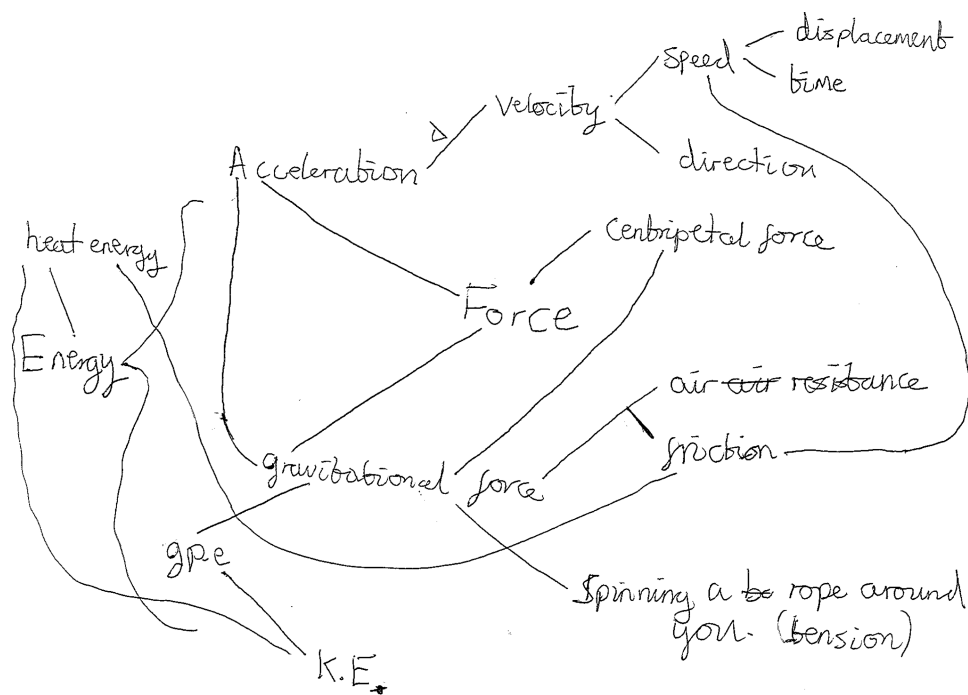 displacement
speed
time
velocity
Δ
direction
Acceleration
centripetal force
heat energy
Force
Energy
air air resistance
friction
gravitational force
gpe
Spinning a be rope around
you. (tension)
K.E.